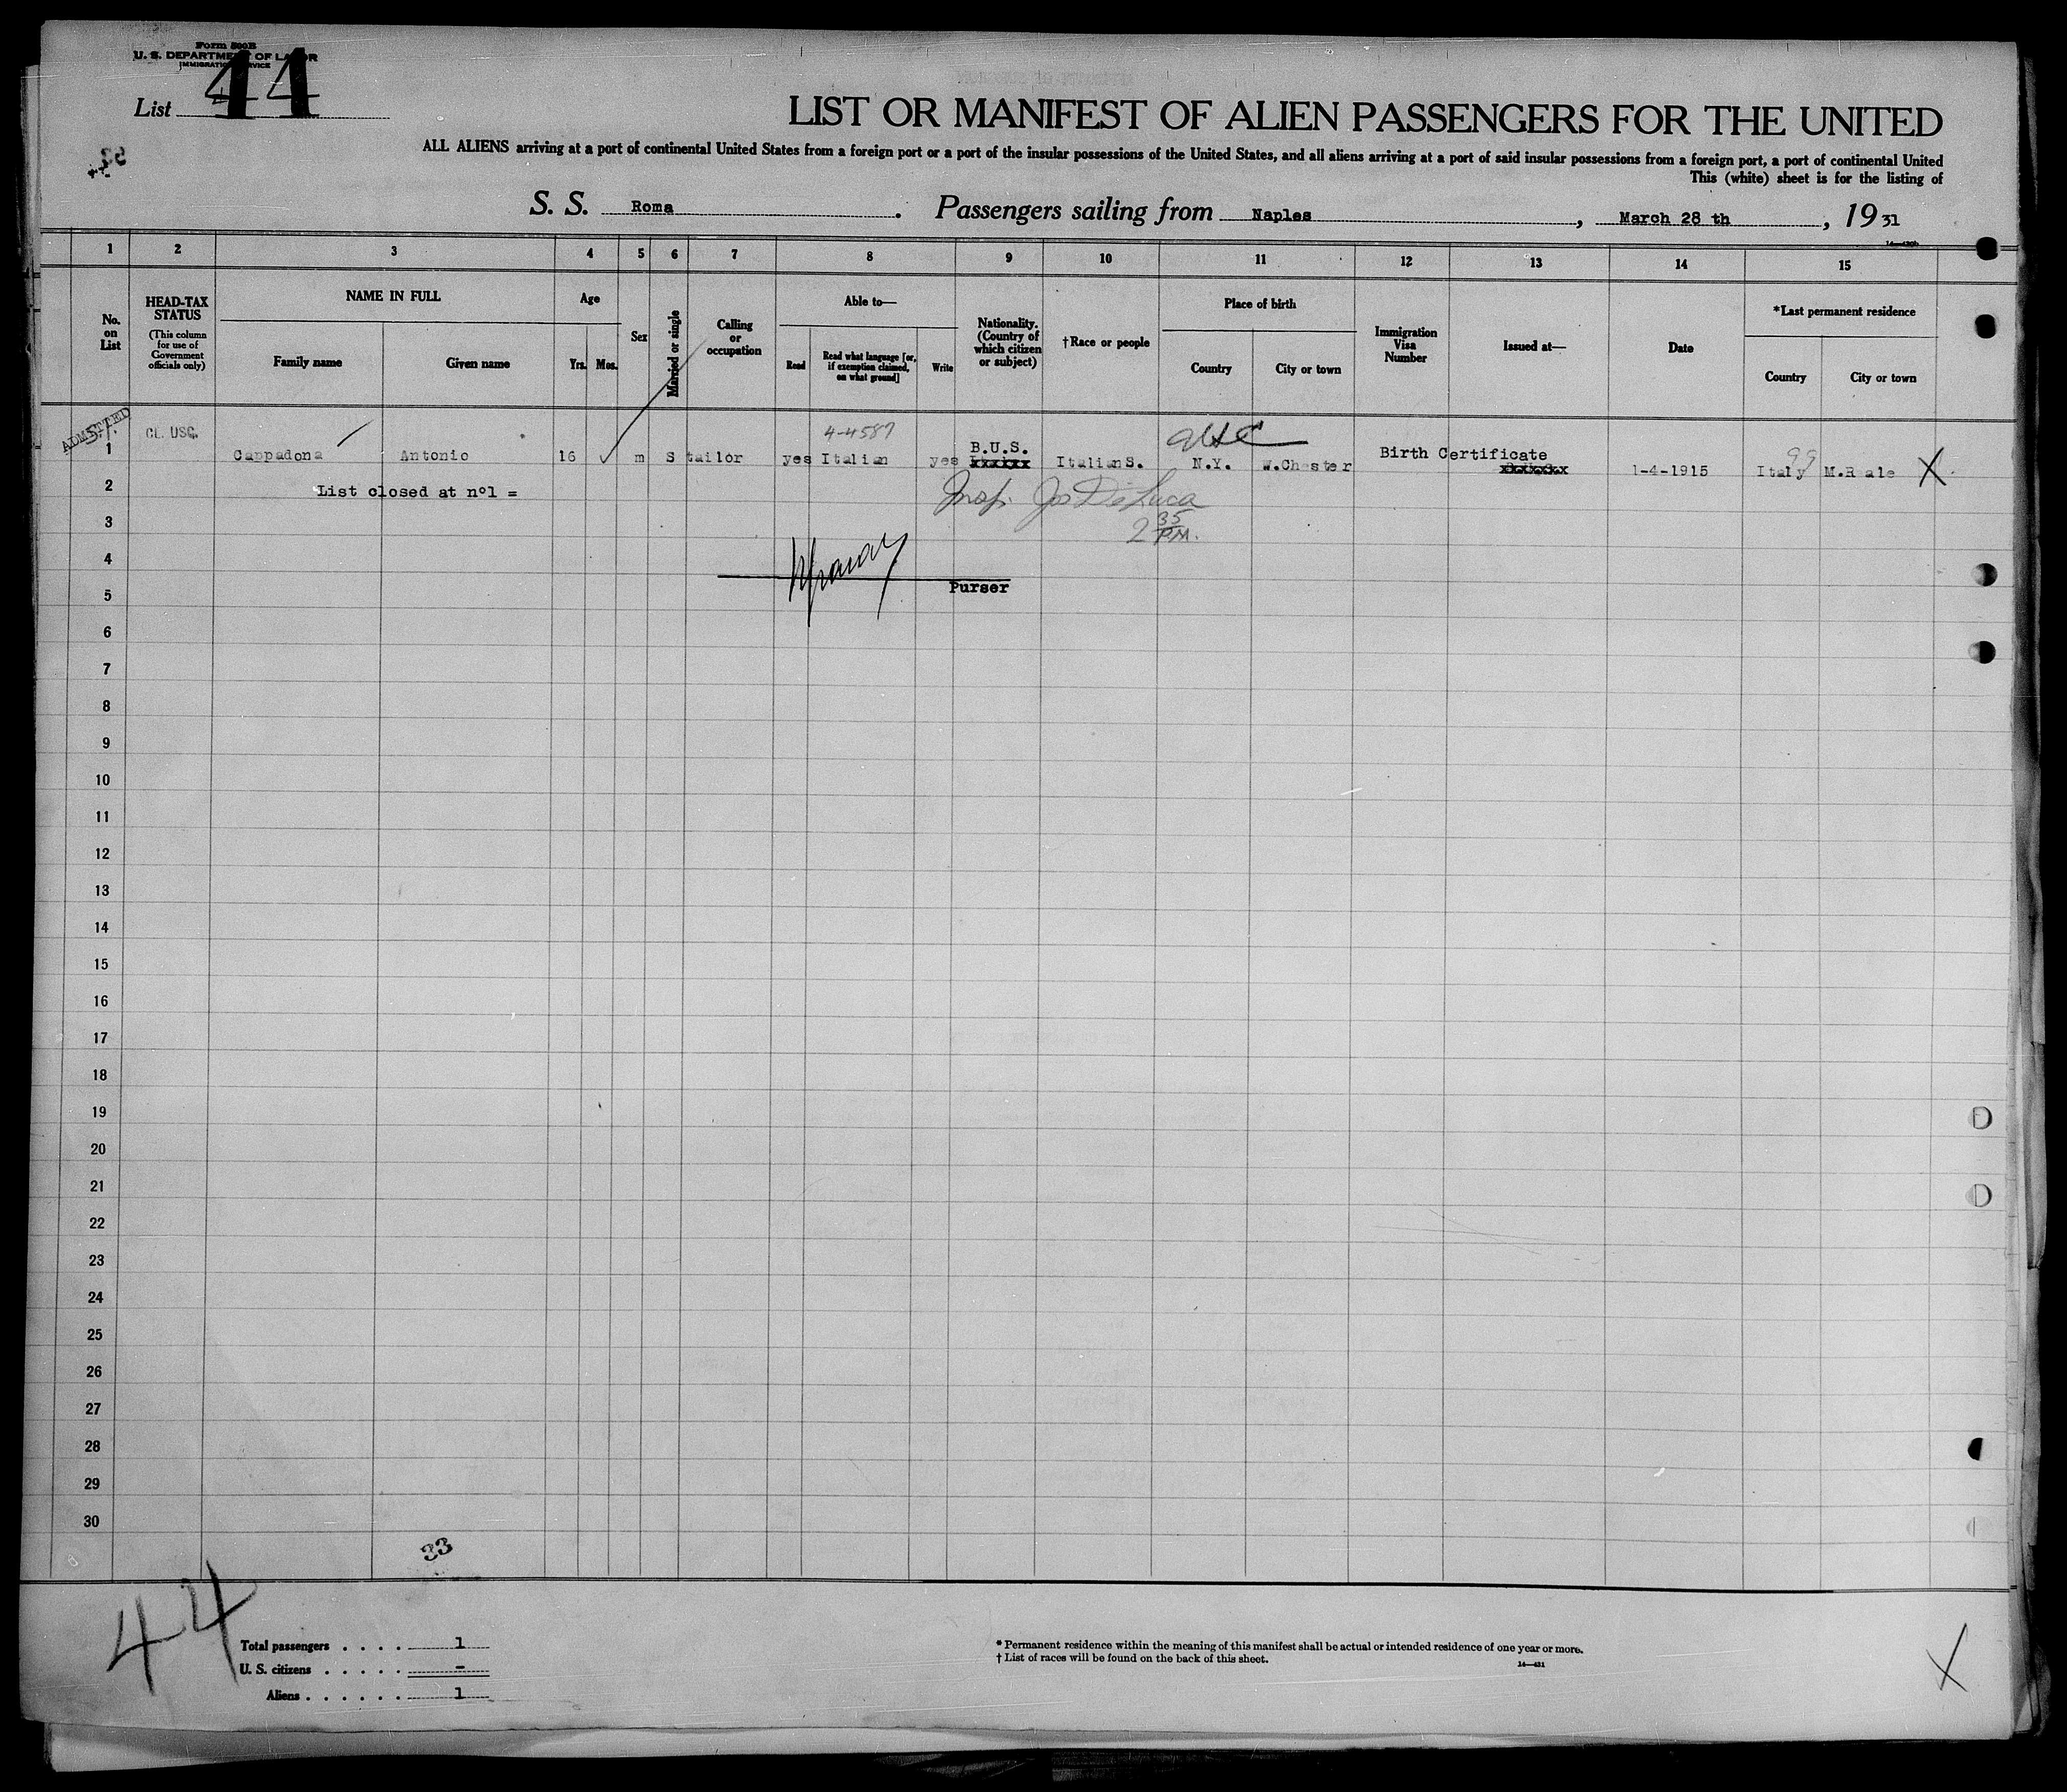 Form 500B
U. S. DEPARTMENT OF LABOR
IMMIGRATION SERVICE
List 44
LIST OR MANIFEST OF ALIEN PASSENGERS FOR THE UNITED
ALL ALIENS arriving at a port of continental United States from a foreign port or a port of the insular possessions of the United States, and all aliens arriving at a port of said insular possessions from a foreign port, a port of continental United
This (white) sheet is for the listing of
S. S. Roma. Passengers sailing from Naples, March 28 th, 1931
1 2 3 4 5 6 7 8 9 10 11 12 13 14 15
No. on List
HEAD-TAX STATUS
(This column for use of Government officials only)
NAME IN FULL
Family name
Given name
Age
Yrs. Mos.
Sex
Married or single
Calling or occupation
Able to—
Read
Read what language [or, if exemption claimed, on what ground]
Write
Nationality. (Country of which citizen or subject)
†Race or people
Place of birth
Country
City or town
Immigration Visa Number
Issued at—
Date
*Last permanent residence
Country
City or town
ADMITTED
CL. USC.
4-4587
99
1 Cappadona Antonio 16 m S tailor yes Italian yes B.U.S. ItalianS. N.Y. W.Chester Birth Certificate xxxxxxx 1-4-1915 Italy M.Reale X
2 List closed at nº1 =
Insp. Jos DeLuca
3
2 35 P.M.
4
Purser
5
6
7
8
9
10
11
12
13
14
15
16
17
18
19
20
21
22
23
24
25
26
27
28
29
30
33
44
Total passengers . . . . 1
U. S. citizens . . . . . -
Aliens . . . . . . 1
* Permanent residence within the meaning of this manifest shall be actual or intended residence of one year or more.
† List of races will be found on the back of this sheet.
14—431
X